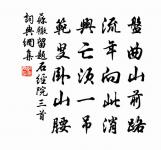 盤曲山前路
流年向此消
興亡須一吊
範叟臥山腰
蘇轍留題石經院三首
詞典網集